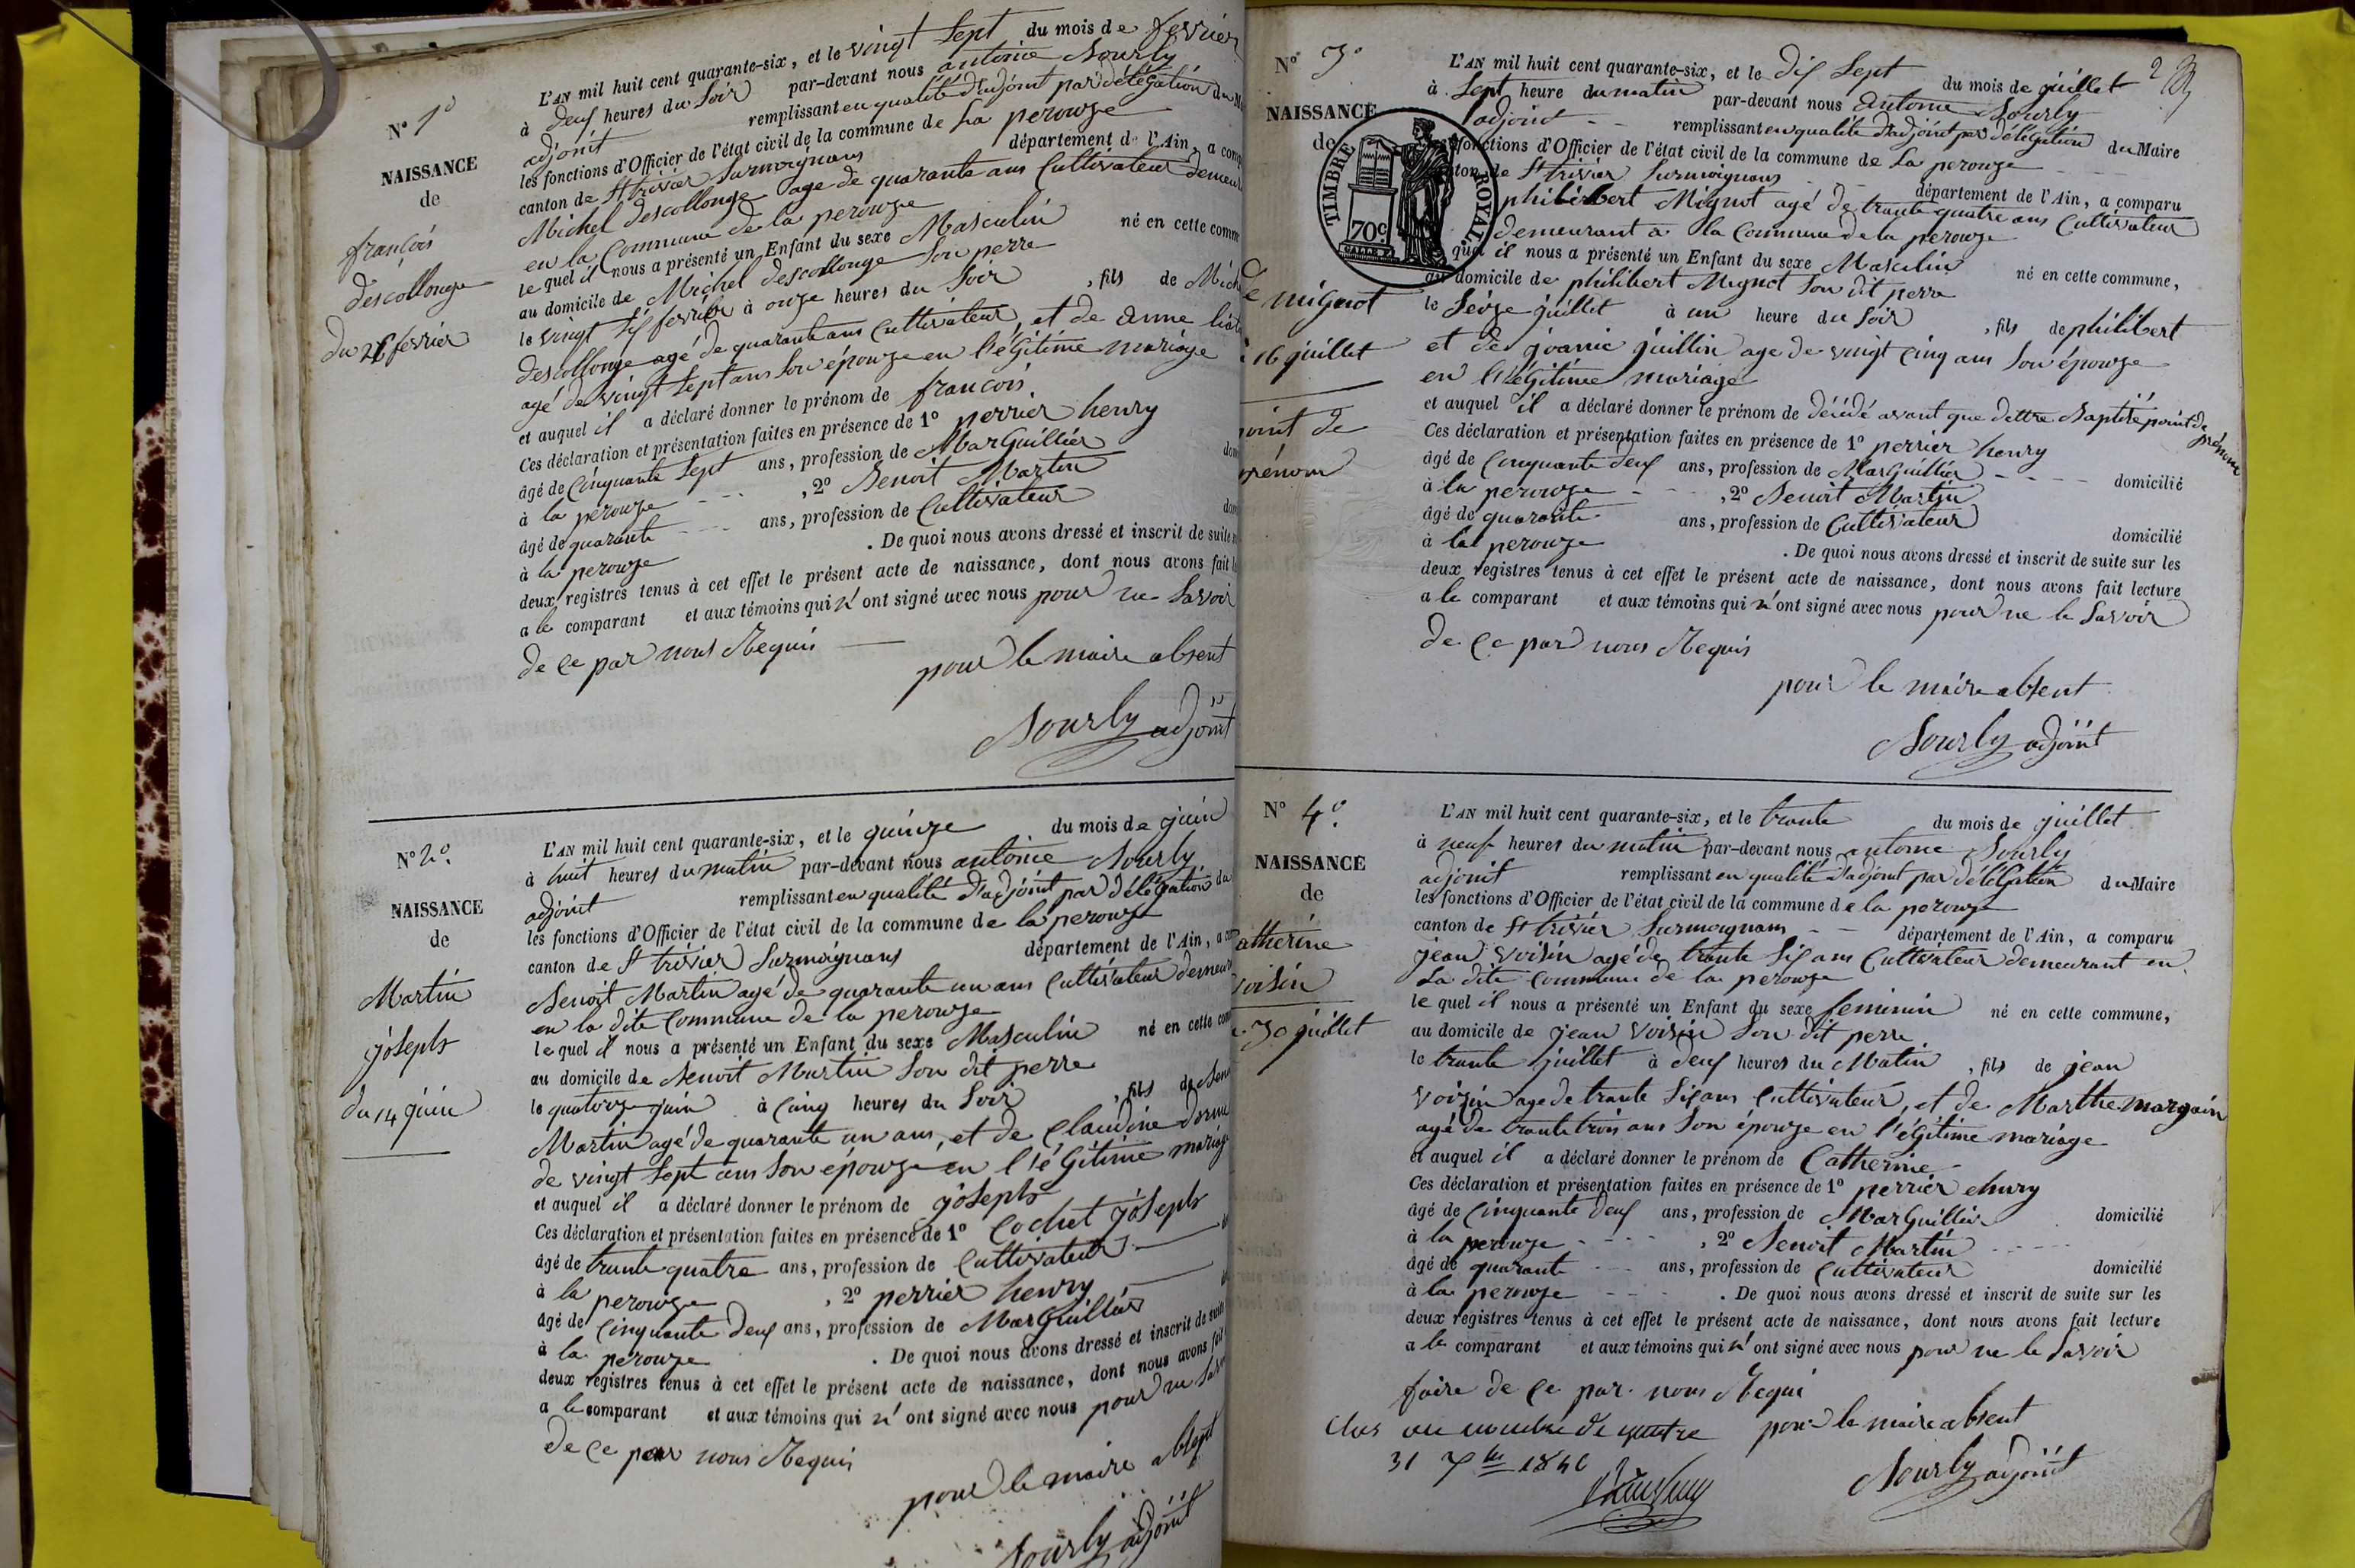 N° 1°
NAISSANCE
de
françois
descollonge
du 26 fevrier
L'AN mil huit cent quarante-six, et le vingt sept du mois de fevrier
à deux heures du soir par-devant nous antoine Nourly
adjoint remplissant en qualité d'adjoint par délégation du
les fonctions d'Officier de l'état civil de la commune de La perouze
canton de St trivier Surmoignans département de l'Ain, a
Michel descollonge agé de quarante ans Cultivateur
en la Commune de la perouze
le quel il nous a présenté un Enfant du sexe Masculin né en cette
au domicile de Michel descollonge Son perre
le vingt six fevrier à onze heures du soir , fils de
descollonge agé de quarante ans Cultivateur, et de anne
agé de vingt sept ans Son épouze en l'égitime mariage
et auquel il a déclaré donner le prénom de francois
Ces déclaration et présentation faites en présence de 1° perrier henry
âgé de Cinquante Sept ans, profession de MarGuillier
à la perouze , 2° Benoit Martin
âgé de quarante ans, profession de Cultivateur
à la perouze . De quoi nous avons dressé et inscrit de suite
deux registres tenus à cet effet le présent acte de naissance, dont nous avons fait
a le comparant et aux témoins qui n'ont signé avec nous pour ne Savoir
de Ce par nous Requis
pour le maire absent
Nourly adjoint
N° 2°
NAISSANCE
de
Martin
joseph
du 14 juin
L'AN mil huit cent quarante-six, et le quinze du mois de juin
à huit heures du matin par-devant nous antoine Nourly
adjoint remplissant en qualité d'adjoint par délégation du
les fonctions d'Officier de l'état civil de la commune de la perouze
canton de St trivier Surmoignans département de l'Ain, a
Benoit Martin agé de quarante un ans Cultivateur
en la dite Commune de la perouze
le quel il nous a présenté un Enfant du sexe Masculin né en cette
au domicile de Benoit Martin Son dit perre
le quatorze juin à Cinq heures du Soir , fils de
Martin agé de quarante un ans, et de Claudine
de vingt Sept ans Son épouze en l'égitime
et auquel il a déclaré donner le prénom de joseph
Ces déclaration et présentation faites en présence de 1° Cochet joseph
âgé de trente quatre ans, profession de Cultivateur
à la perouze , 2° perrier henry
âgé de Cinquante deux ans, profession de MarGuillier
à la perouze . De quoi nous avons dressé et inscrit de suite
deux registres tenus à cet effet le présent acte de naissance, dont nous avons fait
a le comparant et aux témoins qui n'ont signé avec nous pour ne
de Ce par nous Requis
pour le maire absent
Nourly adjoint
N° 3°
NAISSANCE
de
mignot
16 juillet
point de
prénom
TIMBRE ROYAL
70c.
2
L'AN mil huit cent quarante-six, et le dix Sept du mois de juillet
à Sept heure du matin par-devant nous antoine Nourly
adjoint remplissant en qualité d'adjoint par délégation du Maire
fonctions d'Officier de l'état civil de la commune de La perouze
de St trivier Surmoignans département de l'Ain, a comparu
philibert Mignot agé de trante quatre ans Cultivateur
demeurant a la Commune de la perouze
quel il nous a présenté un Enfant du sexe Masculin né en cette commune,
au domicile de philibert Mignot Son dit perre
le Seize juillet à un heure du Soir , fils de philibert
et de joanie juillin age de vingt Cinq ans Son épouze
en l'égitime mariage
et auquel il a déclaré donner le prénom de décédé avant que dettre Baptisé point de prénom
Ces déclaration et présentation faites en présence de 1° perrier henry
âgé de Cinquante deux ans, profession de MarGuillier domicilié
à la perouze , 2° Benoit Martin
âgé de quarante ans, profession de Cultivateur domicilié
à la perouze . De quoi nous avons dressé et inscrit de suite sur les
deux registres tenus à cet effet le présent acte de naissance, dont nous avons fait lecture
a le comparant et aux témoins qui n'ont signé avec nous pour ne le Savoir
de Ce par nous Requis
pour le maire absent
Nourly adjoint
N° 4°
NAISSANCE
de
atherine
voisin
30 juillet
L'AN mil huit cent quarante-six, et le trante du mois de juillet
à neuf heures du matin par-devant nous antoine Nourly
adjoint remplissant en qualité d'adjoint par délégation du Maire
les fonctions d'Officier de l'état civil de la commune de la perouze
canton de St trivier Surmoignans département de l'Ain, a comparu
jean voisin agé de trante Six ans Cultivateur demeurant en
La dite Commune de la perouze
le quel il nous a présenté un Enfant du sexe feminin né en cette commune,
au domicile de jean Voisin Son dit perre
le trante juillet à deux heures du Matin , fils de jean
voisin age de trante Six ans Cultivateur, et de Marthe margain
agé de trante trois ans Son épouze en l'égitime mariage
et auquel il a déclaré donner le prénom de Catherine
Ces déclaration et présentation faites en présence de 1° perrier henry
âgé de Cinquante deux ans, profession de MarGuillier domicilié
à la perouze , 2° Benoit Martin
âgé de quarante ans, profession de Cultivateur domicilié
à la perouze . De quoi nous avons dressé et inscrit de suite sur les
deux registres tenus à cet effet le présent acte de naissance, dont nous avons fait lecture
a le comparant et aux témoins qui n'ont signé avec nous pour ne le Savoir
faire de Ce par nous Requi
Clos au nombre de quatre pour le maire absent
31 Xbre 1846
Nourly adjoint